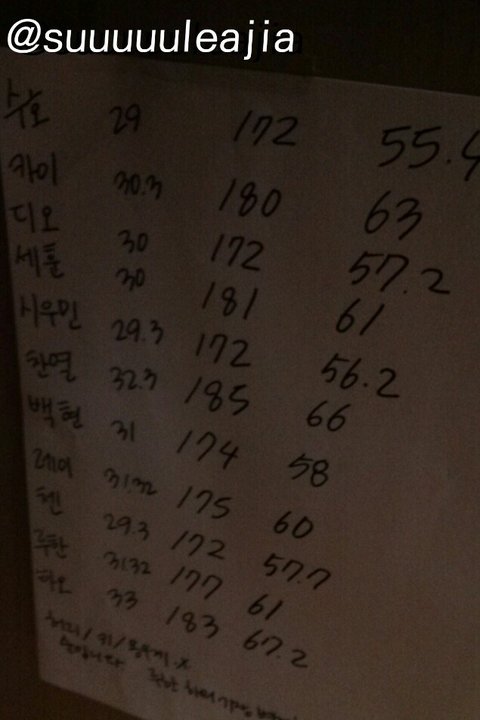 @suuuuuleajia
수호 29 172 55.4
카이 30.3 180 63
디오 30 172 57.2
세훈 30 181 61
시우민 29.3 172 56.2
찬열 32.3 185 66
백현 31 174 58
레이 31.32 175 60
첸 29.3 172 57.7
루한 31.32 177 61
타오 33 183 67.2
허리/키/몸무게.x
순입니다 루한 허리